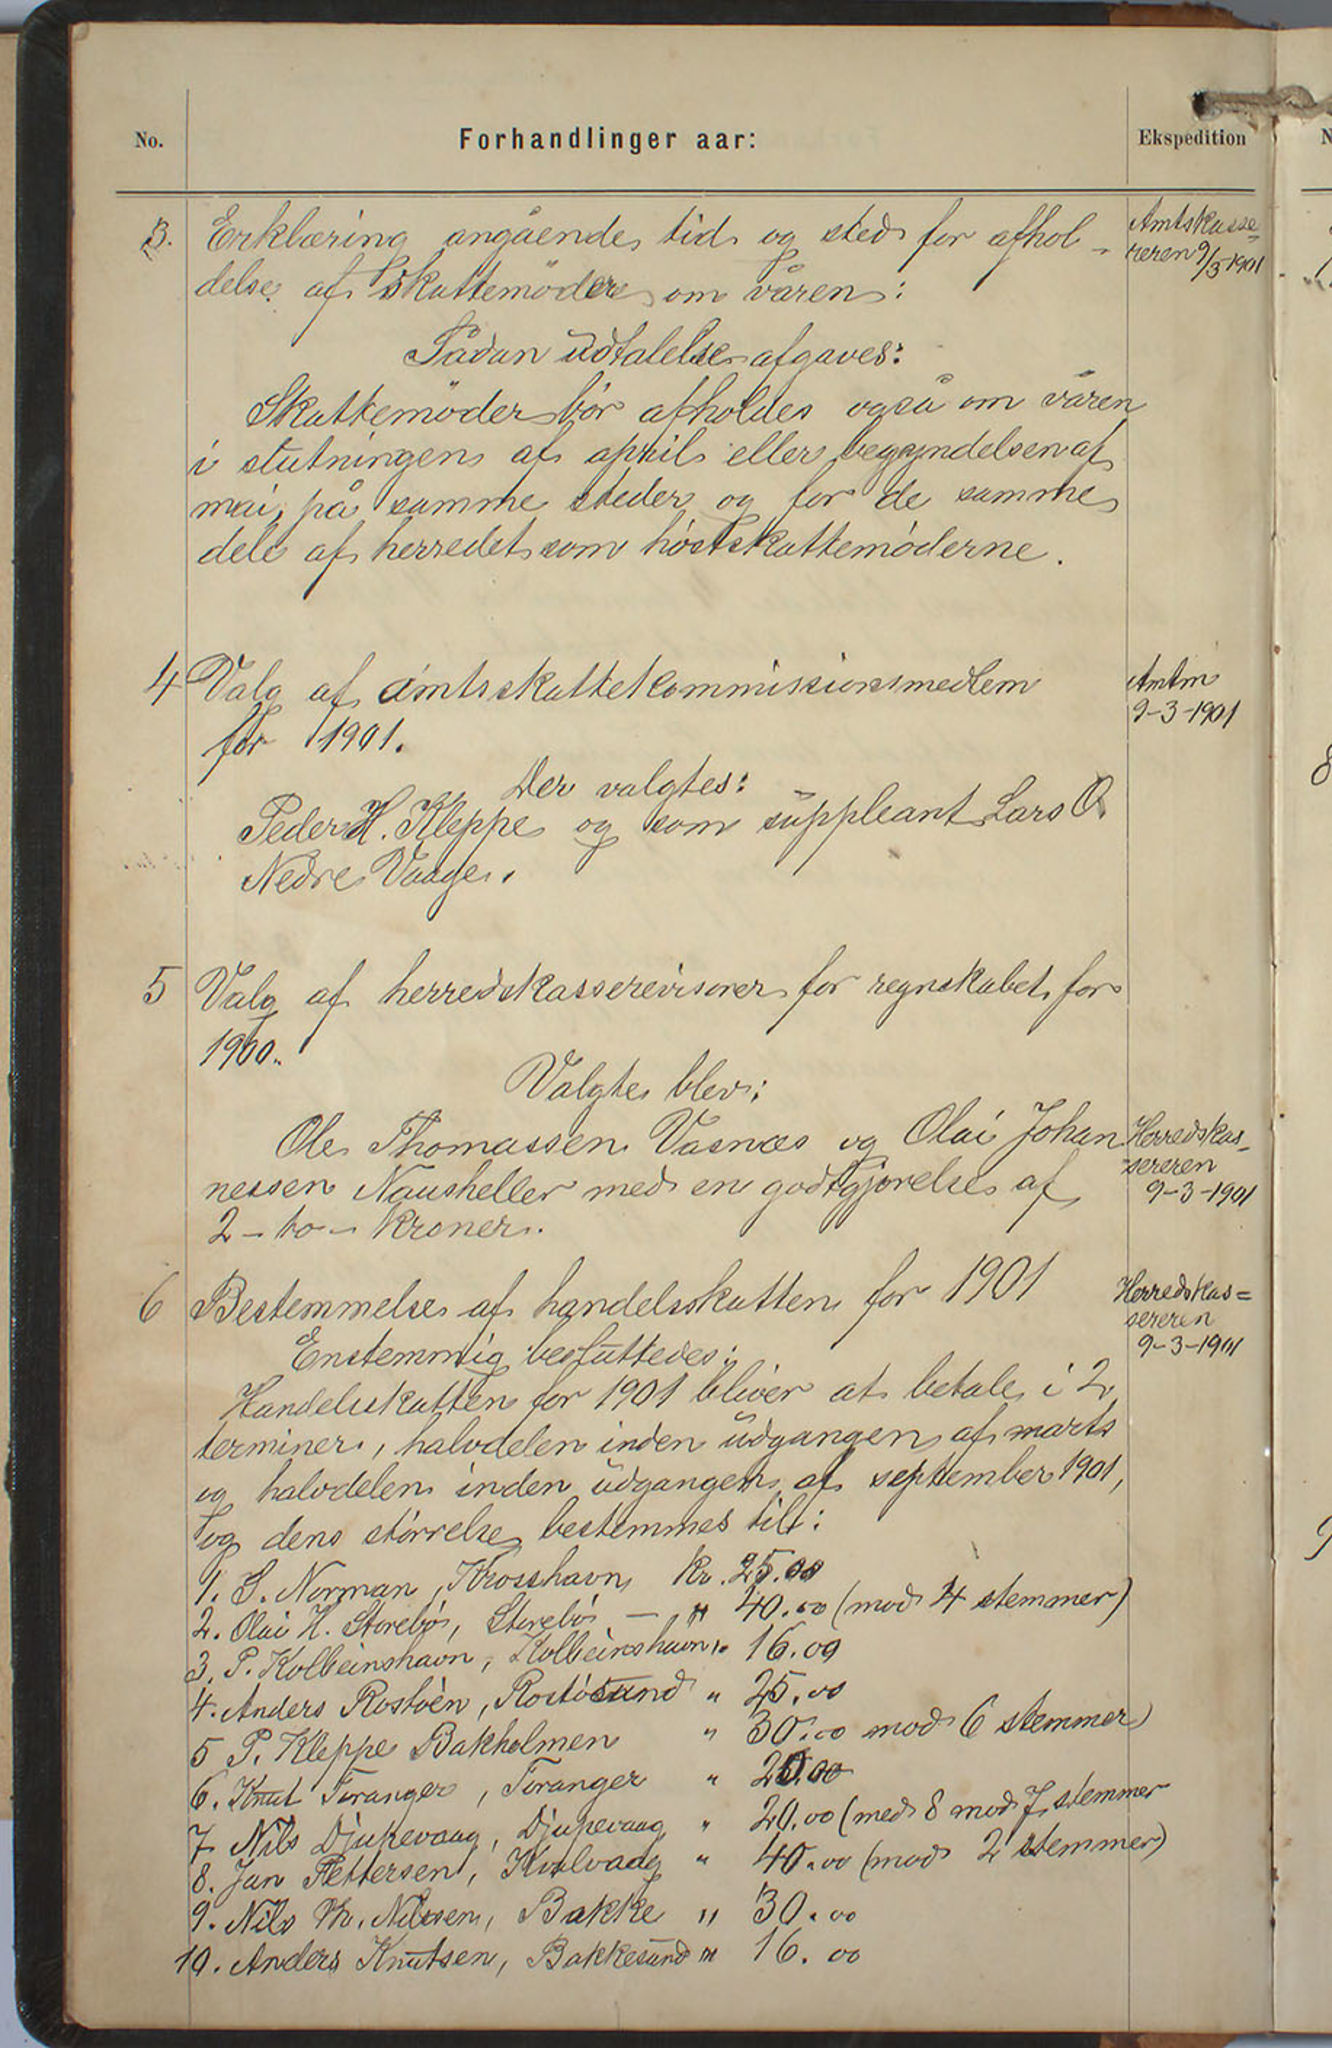 No.
Forhandlinger aar:
Ekspedition
3. Erklæring angående tid og sted for afhol-
delse af skattemøder om våren:
Amtskasse-
reren 9/3 1901
Sådan udtalelse afgaves:
Skattemøder bør afholdes også om våren
i slutningen af april eller begyndelsen af
mai, på samme steder og for de samme
dele af herredet som høstskattemøderne.
4 Valg af amtsskattekommissionsmedlem
for 1901.
Amtm
9-3-1901
Der valgtes:
Peder H. Kleppe og som suppleant Lars O.
Nedre Vaage.
5 Valg af herredskasserevisorer for regnskabet for
1900.
Valgte blev:
Ole Thomassen Vasnæs og Olai Johan
nessen Nausheller med en godtgjørelse af
2 - to - kroner.
Herredskas-
sereren
9-3-1901
6 Bestemmelse af handelsskatten for 1901
Herredskas=
sereren
9-3-1901
Enstemmig besluttedes:
Handelsskatten for 1901 bliver at betale i 2
terminer, halvdelen inden udgangen af marts
og halvdelen inden udgangen af september 1901,
og dens størrelse bestemmes til:
1. S. Norman, Krosshavn kr. 25.00
2. Olai H. Storebø, Storebø — " 40.00 (mod 4 stemmer)
3. P. Kolbeinshavn, Kolbeinshavn " 16.00
4. Anders Rostøen, Rostøsund " 25.00
5 P. Kleppe Bakholmen " 30.00 mod 6 stemmer)
6. Knut Foranger, Foranger " 20.00
7 Nils Djupevaag, Djupevaag " 20.00 (med 8 mod 7 stemmer
8. Jan Pettersen, Kvalvaag " 40.00 (mod 2 stemmer)
9. Nils Th. Nilssen, Bakke " 30.00
10. Anders Knutsen, Bakkesund " 16.00